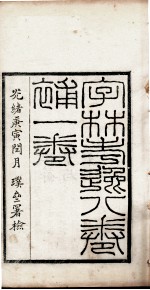 字林考逸八卷
補一卷
光緒庚寅閏月 璞署檢